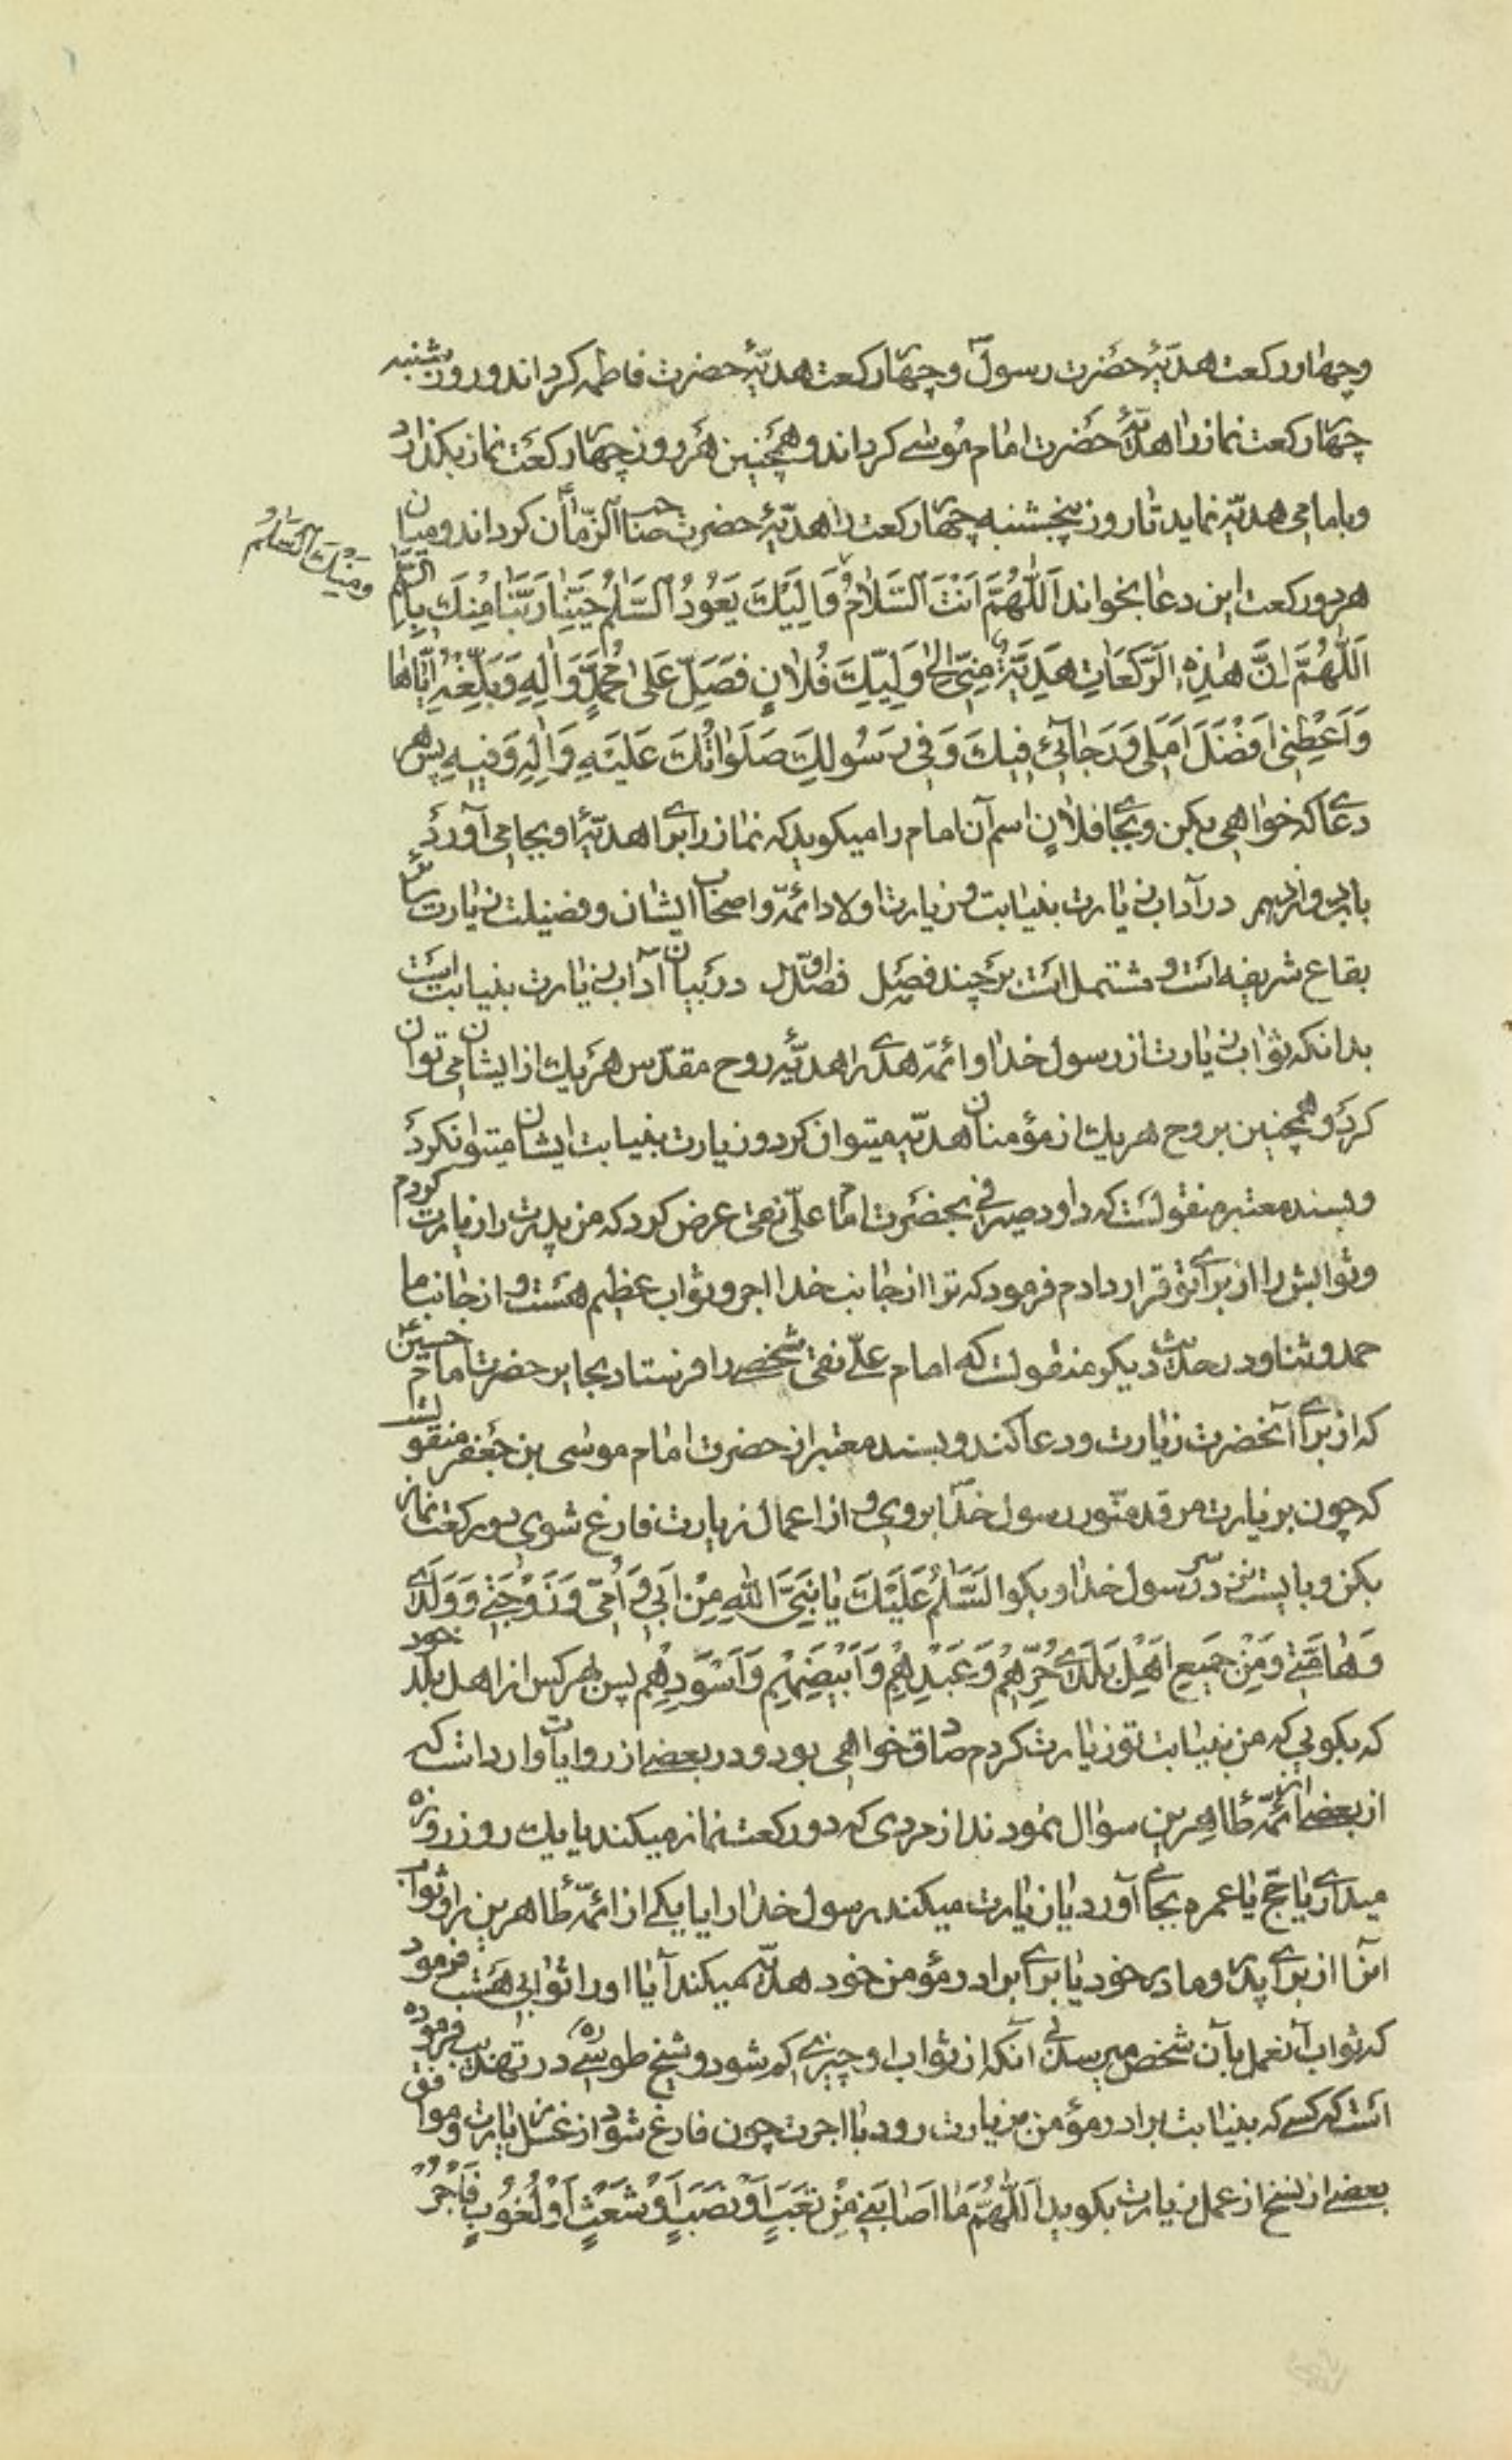 وچهار رکعت هدیّهٔ حضرت رسول ص وچهار رکعت هدیّهٔ حضرت فاطمه کرداند وروز شنبه
چهار رکعت نماز را هدیّهٔ حضرت امام موسی کرداند وهمچنین هر روز چهار رکعت نماز بکذارد
وبامامی هدیّه نماید تا روز پنجشنبه چهار رکعت را هدیّهٔ حضرت صاحب الزّمان کرداند ومیان
هر دو رکعت این دعا بخواند اَللّٰهُمَّ اَنْتَ السَّلامُ وَاِلَیْكَ یَعُودُ السَّلٰمُ حَیِّنا رَبَّنا مِنْكَ بِالسَّلٰمِ
ومِنْكَ السَّلٰمُ
اَللّٰهُمَّ اِنَّ هٰذِهِ الرَّکَعَاتِ هَدِیَّةٌ مِنّی اِلیٰ وَلِیِّكَ فُلانٍ فَصَلِّ عَلیٰ مُحَمَّدٍ وَآلِهِ وَبَلِّغْهُ اِیّاها
وَاَعْطِنی اَفْضَلَ اَمَلی وَرَجائی فِیكَ وَفی رَسُولِكَ صَلَوٰاتُكَ عَلَیْهِ وَآلِهِ وَفیهِ پس هر
دعا که خواهی بکن وبجای فلانٍ اسم آن امام را میکوید که نماز را برای هدیّهٔ او بجا می آورد
باب دوازدهم در آداب زیارت بنیابت وزیارت اولاد ائمّه واصحاب ایشان وفضیلت زیارت سائر
بقاع شریفه است ومشتمل است بر چند فصل فصل اوّل در بیان آداب زیارت بنیابت است
بدانکه ثواب زیارت از رسول خدا وائمّه هدی را هدیّهٔ روح مقدّس هر یك از ایشان می توان
کرد وهمچنین بروح هر یك از مؤمنان هدیّه میتوان کرد وزیارت بنیابت ایشان میتوان کرد
وبسند معتبر منقولست که داود صیرفی بحضرت امام علیّ نقی عرض کرد که من پدرت را زیارت کردم
وثوابش را از برای تو قرار دادم فرمود که ترا از جانب خدا اجر وثواب عظیم هست واز جانب ما
حمد وثنا ودر حدیث دیکر منقولست که امام علیّ نقی شخصی را فرستاد بحایر حضرت امام حسین
که از برای آنحضرت زیارت ودعا کند وبسند معتبر از حضرت امام موسی بن جعفر منقولست
که چون بزیارت مرقد منوّر رسول خدا بروی واز اعمال زیارت فارغ شوی دو رکعت نماز
بکن وبایست نزد سر رسول خدا وبکو السَّلٰمُ عَلَیْكَ یا نَبِیَّ اللهِ مِنْ اَبی وَاُمّی وَزَوْجَتی وَوَلَدی
وَحامَّتی وَمِنْ جَمیعِ اَهْلِ بَلَدی حُرِّهِمْ وَعَبْدِهِمْ وَاَبْیَضِهِمْ وَاَسْوَدِهِم پس بهر کس از اهل بلد خود
که بکویی که من بنیابت تو زیارت کردم صادق خواهی بود ودر بعضی از روایات وارد است که
از بعضی از ائمّه طاهرین سوال نمودند از مردی که دو رکعت نماز میکند یا یك روز روزه
میدارد یا حجّ یا عمره بجای آورد یا زیارت میکند رسول خدا را یا یکی از ائمّه طاهرین را وثواب
آنرا از برای پدر ومادر خود یا برای برادر مؤمن خود هدیّه میکند آیا او را ثوابی هست فرمود
که ثواب آنعمل بآن شخص میرسد بی آنکه از ثواب او چیزی کم شود وشیخ طوسی ره در تهذیب فرموده
است که کسی که بنیابت برادر مؤمن بزیارت رود با اجرت چون فارغ شود از غسل زیارت وموافق
بعضی از نسخ از عمل زیارت بکوید اَللّٰهُمَّ مٰا اَصابَنی مِنْ تَعَبٍ اَوْ نَصَبٍ اَوْ شَعَثٍ اَوْ لُغُوبٍ فَأْجُرْ